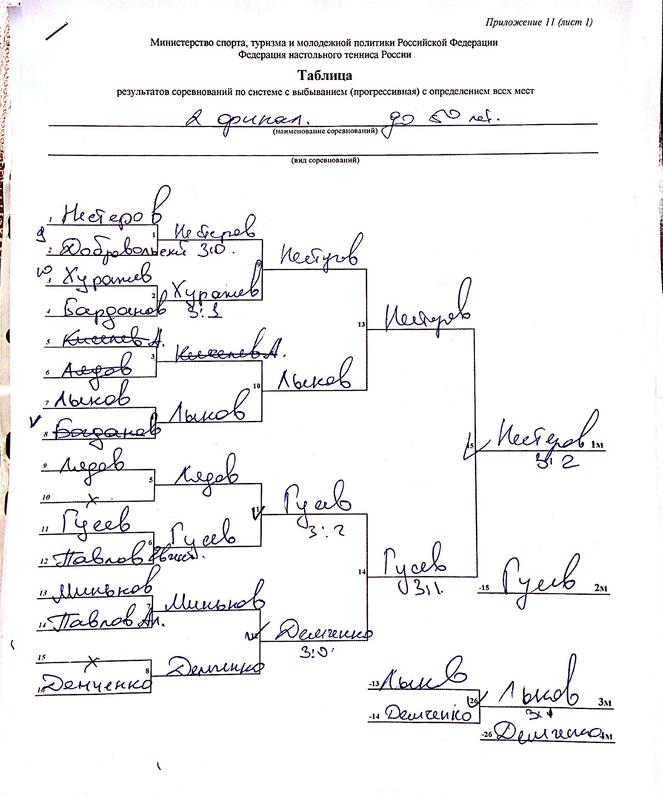 Приложение 11 (лист 1)
Министерство спорта, туризма и молодежной политики Российской Федерации
Федерация настольного тенниса России
Таблица
результатов соревнований по системе с выбыванием (прогрессивная) с определением всех мест
2 финал. до 50 лет.
(наименование соревнований)
(вид соревнований)
1 Нестеров
1 Нестеров
2 Добровольский 3:0.
Нестеров
3 Хуратев
2 Хуратев
4 Барданов 3:1
13 Нестеров
5 Киселев А.
3 Киселев А.
6 Лядов
10 Лыков
7 Лыков
Лыков
8 Богданов
15 Нестеров 1м
3:2
9 Лядов
5 Лядов
10 х
Гусев
3:2
11 Гусев
6 Гусев
12 Павлов
14 Гусев
3:1.
-15 Гусев 2м
13 Миньков
7 Миньков
14 Павлов Ал.
Демченко
3:0.
15 х
8 Демченко
16 Демченко
-13 Лыков
26 Лыков 3м
3:1
-14 Демченко
-26 Демченко 4м